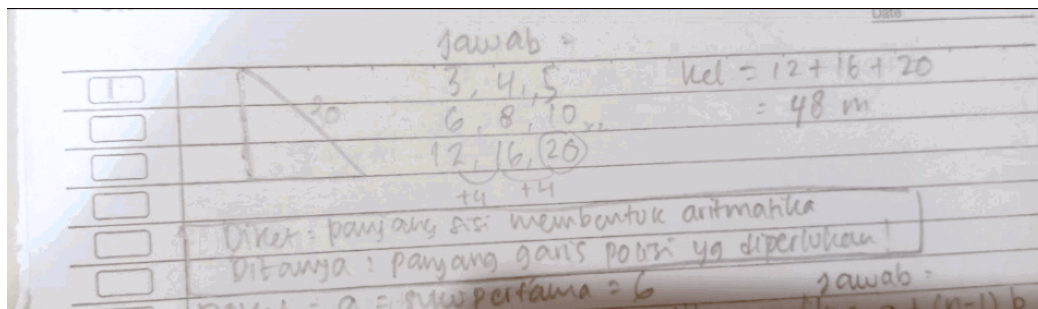 Date
Jawab =
1
20
3, 4, 5
6, 8, 10
12, 16, 20
+4 +4
Kel = 12 + 16 + 20
= 48 m
Diket : panjang sisi membentuk aritmatika
Ditanya : panjang garis yg diperlukan!
a = suku pertama = 6
Jawab =
(n-1) b